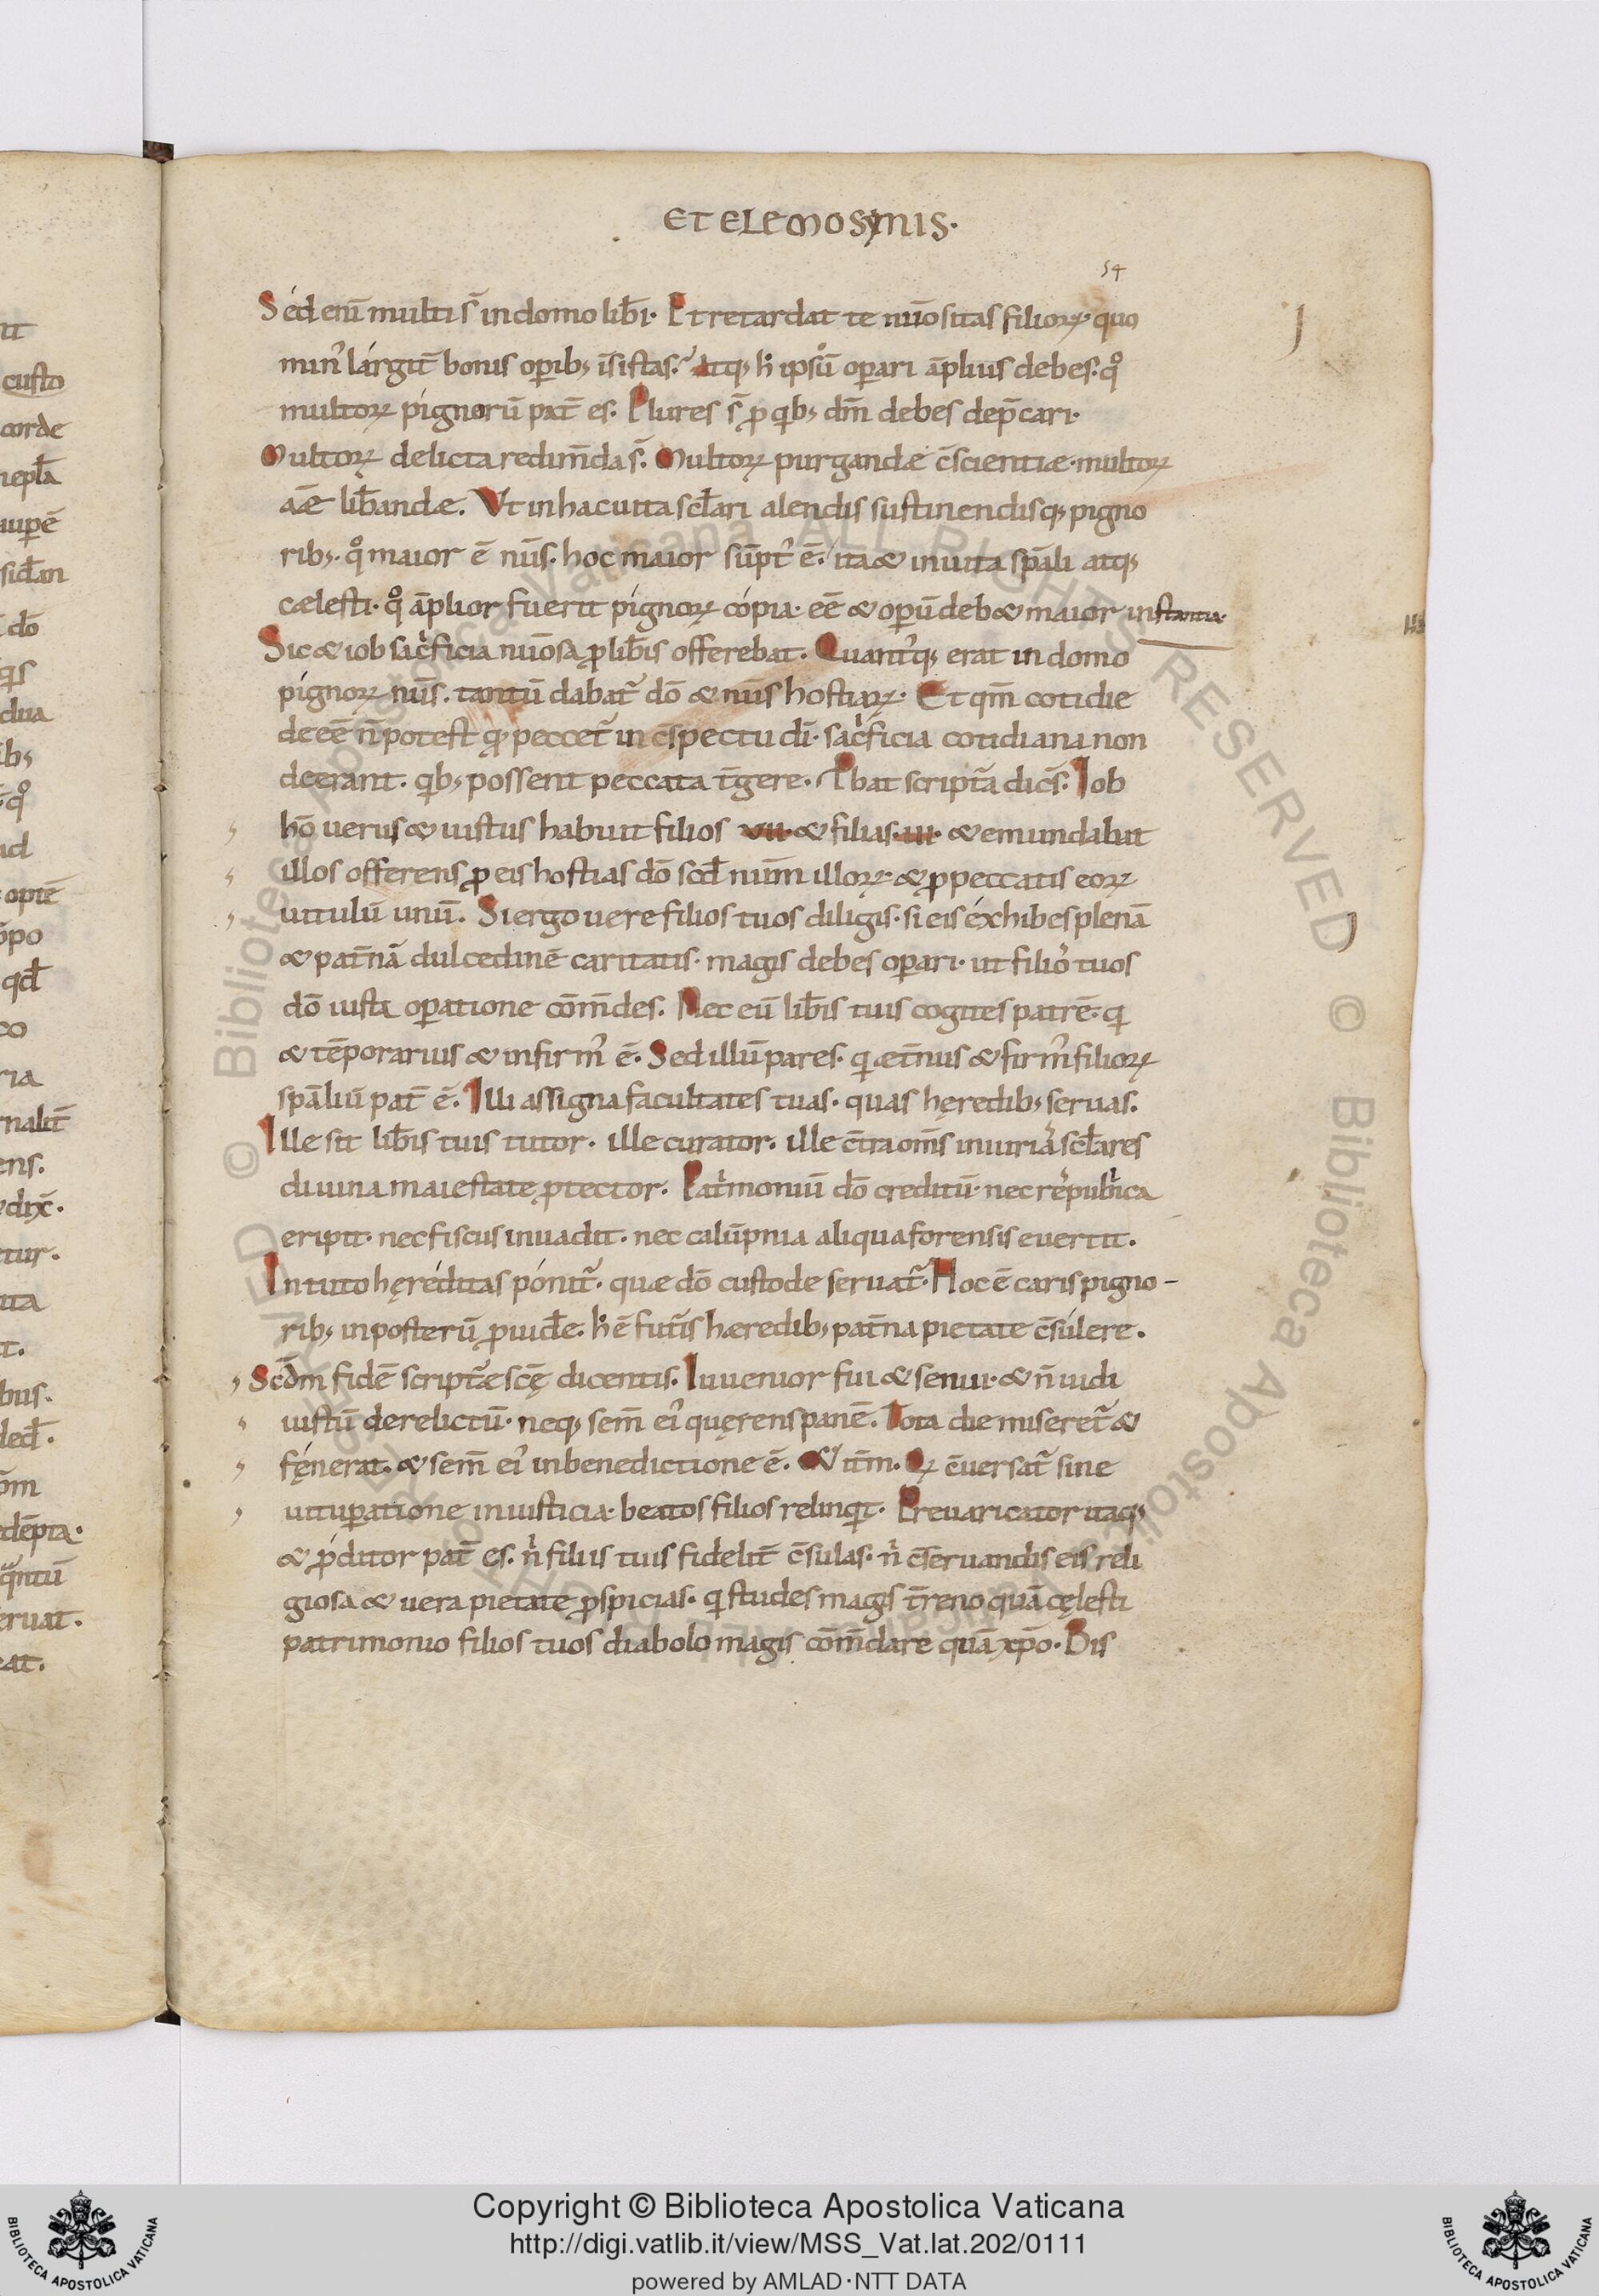 ET ELEMOSYNIS.
54
Sed eni̅ multi s̅ in domo lib̅i. Et retardat te nu̅ositas filioꝝ. quo
min᾽ largit̅ bonis oꝑibꝫ i̅sistas. Atqꝫ h̅ ipsu̅ oꝑari a̅plius debes. qͦ
multoꝝ pignoru̅ pat̅ es. Plures s̅ ꝓ qibꝫ dm̅ debes dep̅cari.
Multoꝝ delicta redim̅da s̅. Multoꝝ purgandæ c̅scientiæ. multoꝝ
aı̅æ lib̅andæ. Vt in hac uita scl̅ari alendis sustinendisqꝫ pigno
ribꝫ. qͦ maior e̅ nu̅s. hoc maior su̅pt᾽ e̅. ita & in uita sp̅ali atqꝫ
cælesti. qͦ a̅plior fuerit pignoꝝ copia. ee̅ & oꝑu̅ deb& maior instantia.
Sic & iob sac͛ficia nu̅osa ꝓ lib̅is offerebat. Quant᾽qꝫ erat in domo
pignoꝝ nu̅s. tantu̅ dabat᷑ do̅ & nu̅s hostiaꝝ. Et qm̅ cotidie
deee̅ n̅ potest qꝫ peccet᷑ in c̅spectu di̅. sac͛ficia cotidiana non
deerant. qibꝫ possent peccata t̅gere. Pbat script᷑a dice̅s. Iob
ho̅ uerus & iustus habuit filios vii. & filias. iii. & emundabit
illos offerens ꝓ eis hostias do̅ scd̅ num̅ illoꝝ. & ꝓ peccatis eoꝝ
uitulu̅ unu̅. Si ergo uere filios tuos diligis. si eis exhibes plena̅
& pat̅na̅ dulcedine̅ caritatis. magis debes oꝑari. ut filio᾽ tuos
do̅ iusta oꝑatione co̅m̅des. Nec eu̅ lib̅is tuis cogites patre̅. qi
& te̅porarius & infirm᾽ e̅. Sed illu̅ pares. qi æt̅nus & firm᾽ filioꝝ
sp̅aliu̅ pat̅ e̅. Illi assigna facultates tuas. quas hęredibꝫ seruas.
Ille sit lib̅is tuis tutor. ille curator. ille c̅tra om̅s iniuria᾽ scl̅ares
diuina maiestate ꝓtector. Pat͛moniu̅ do̅ creditu̅. nec re᾽publ͛ica
eripit. nec fiscus inuadit. nec calu̅pnia aliqua forensis euertit.
In tuto hęreditas ponit᷑. quæ do̅ custode seruat᷑. Hoc e̅ caris pigno-
ribꝫ in posteru̅ ꝓuide̅. h̅ e̅ fut᷑is hæredibꝫ pat̅na pietate c̅sulere.
Scd̅m fide̅ script᷑æ sc̅ę dicentis. Iuuenior fui & senui. & n̅ uidi
iustu̅ derelictu̅. neqꝫ sem̅ ei᾽ quęrens pane̅. Tota die miseret᷑ &
fęnerat. & sem̅ ei᾽ in benedictione e̅. Et it̅m. Q c̅uersat᷑ sine
uituꝑatione in iusticia. beatos filios relinqit. Preuaricator itaqꝫ
& ꝓditor pat̅ es. n͛ filiis tuis fidelit̅ c̅sulas. n͛ c̅seruandis eis reli
giosa & uera pietate ꝓspicias. qi studes magis t̅reno qua̅ cęlesti
patrimonio filios tuos diabolo magis co̅m̅dare qua̅ xp̅o. Bis
ut
custo
corde
auꝑe̅
sid̅an
do̅
dua
ibꝫ
qͦ
opte̅
qd̅
ria
ens.
tur.
bus.
de̅pta.
eruat.
Copyright © Biblioteca Apostolica Vaticana
http://digi.vatlib.it/view/MSS_Vat.lat.202/0111
powered by AMLAD·NTT DATA
BIBLIOTECA APOSTOLICA VATICANA
BIBLIOTECA APOSTOLICA VATICANA